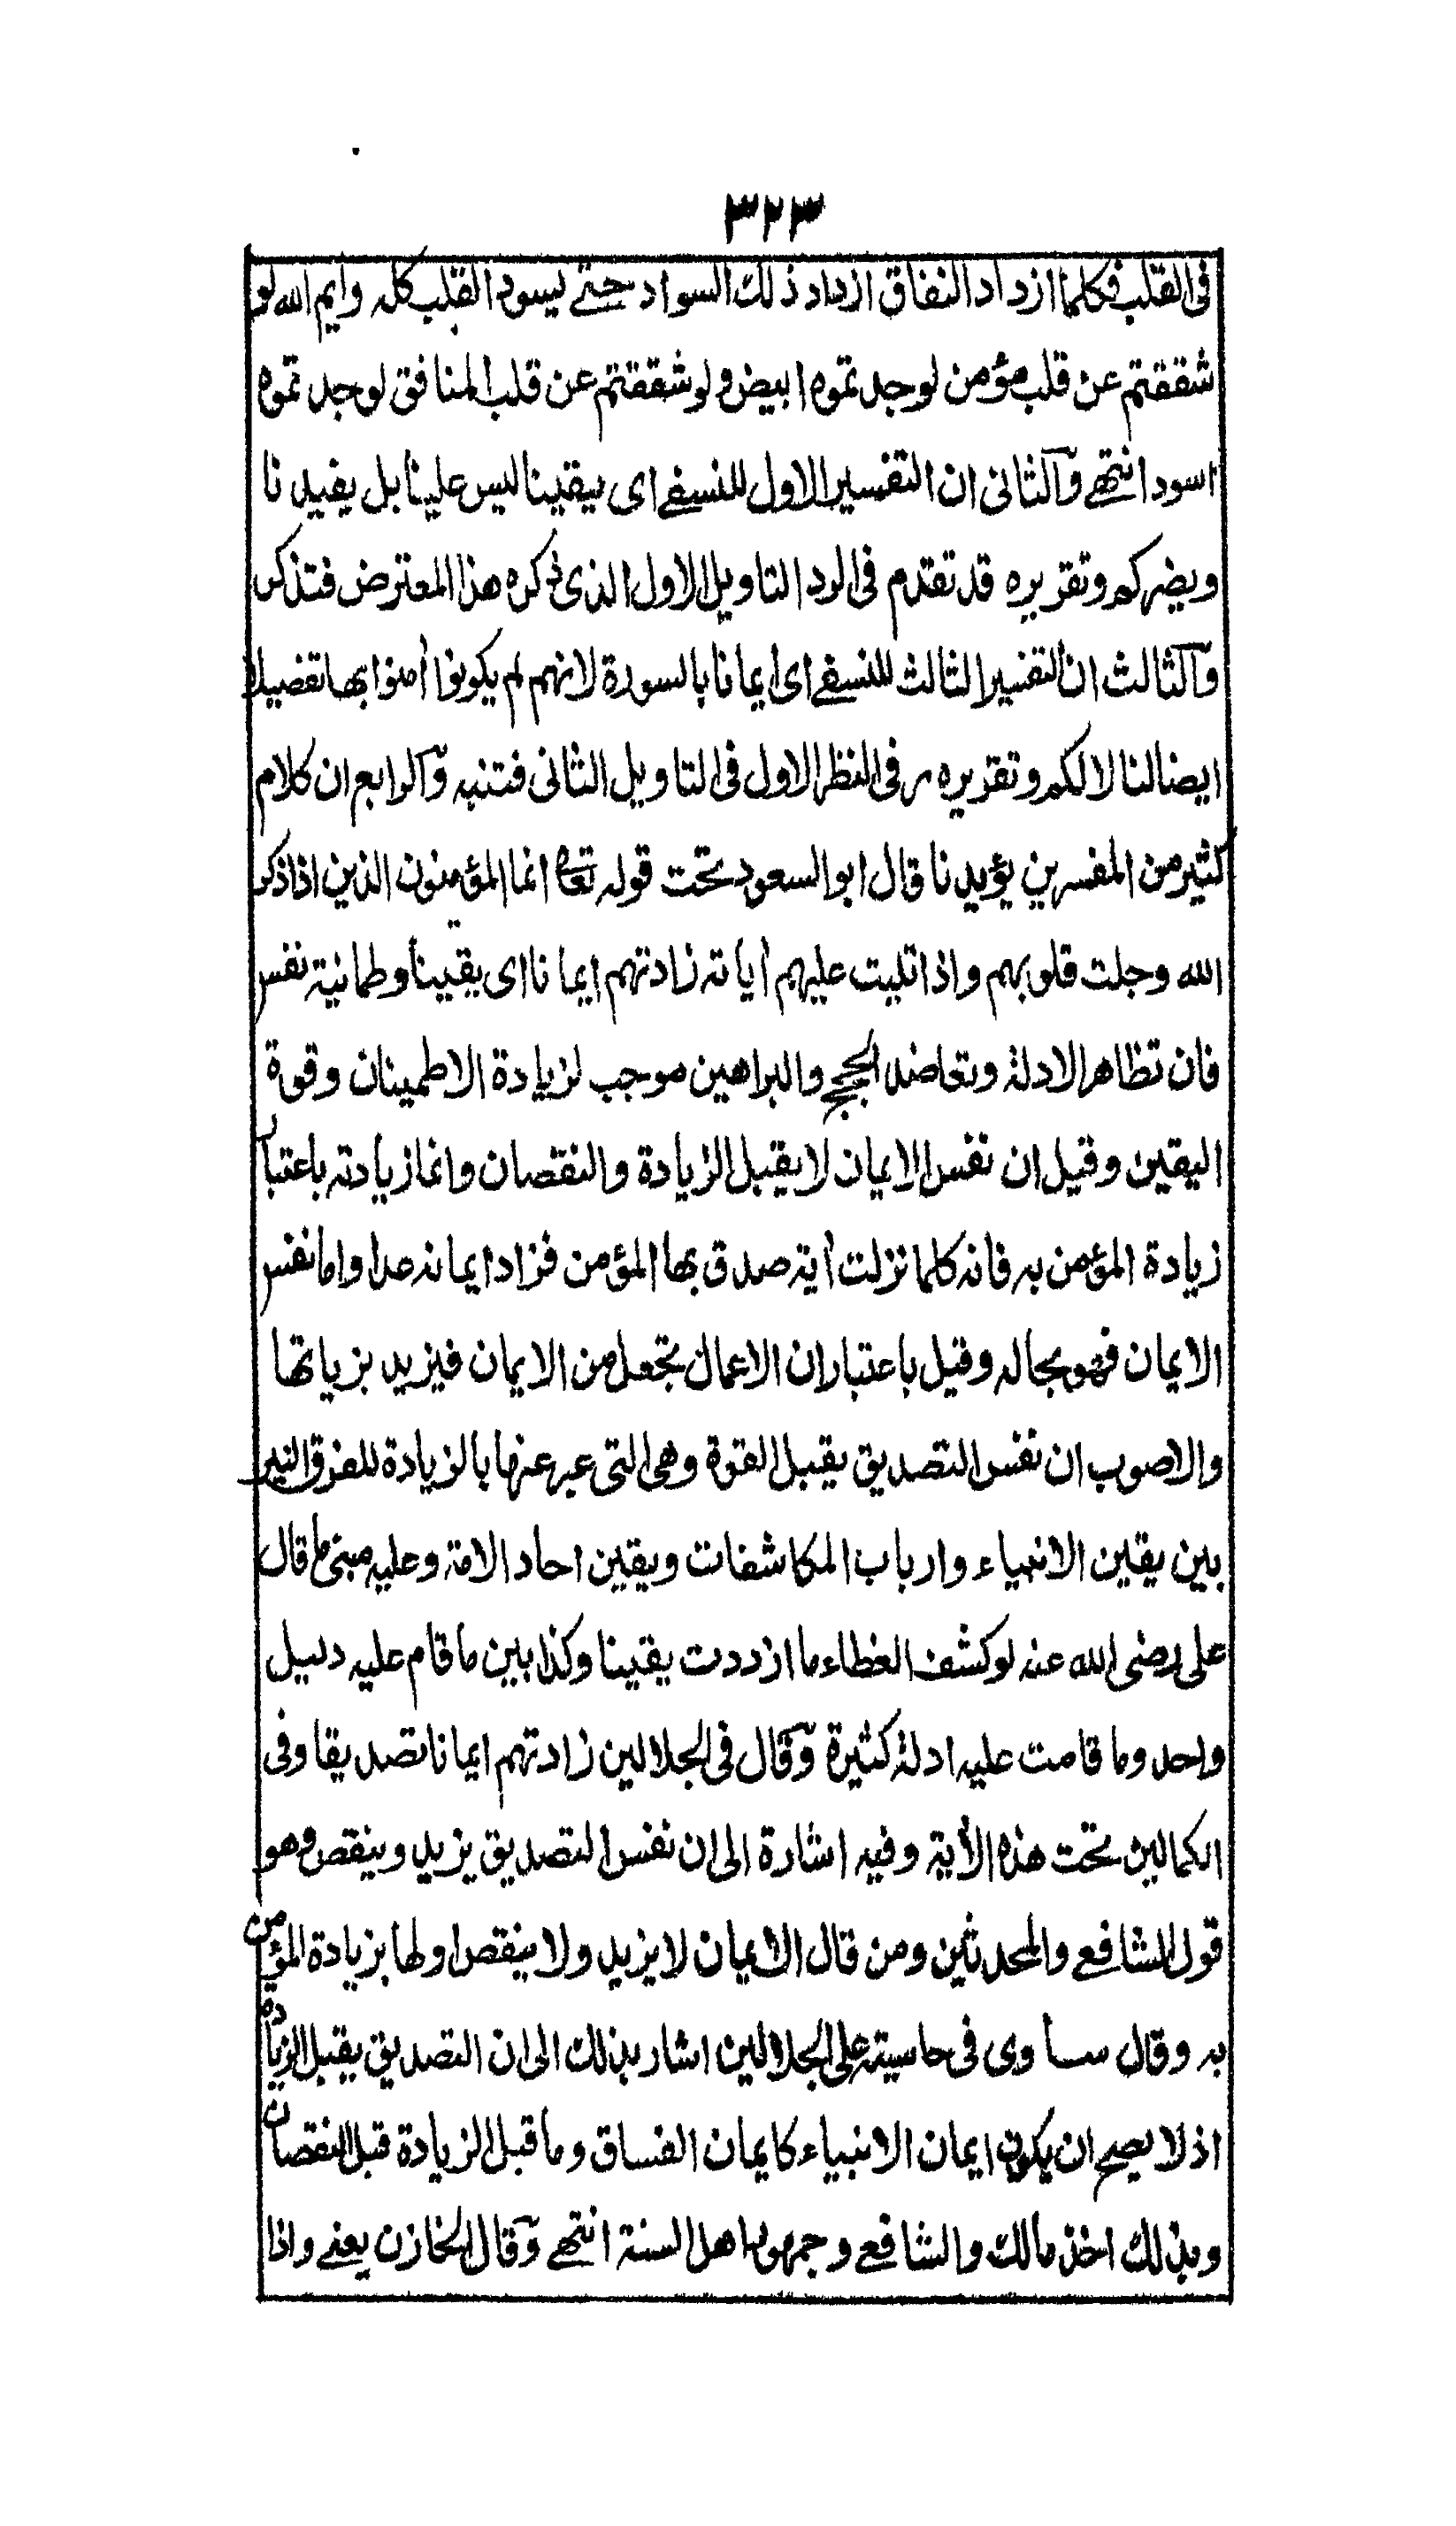 ٣٢٣
فى القلب فكلما ازداد النفاق ازداد ذلك السواد حتے يسود القلب كله وايم الله لو
شققتم عن قلب مؤمن لوجدتموه ابيض ولو شققتم عن قلب المنافق لوجدتموه
اسود انتهے وآلثانى ان التفسير الاول للنسفے اى يقينا ليس علينا بل يفيدنا
ويضركم وتقريره قد تقدم فى الرد التاويل الاول الذى ذكره هذا المعترض فتذكر
وآلثالث ان التفسير الثالث للنسفے اى ايمانا بالسورة لانهم لم يكونوا أمنوا بها تفصيلا
ايضا لنا لا لكم وتقريره مر فى النظر الاول فى التاويل الثانى فتنبه وآلرابع ان كلام
كثير من المفسرين يؤيدنا قال ابو السعود تحت قوله تعا انما المؤمنون الذين اذا ذكر
الله وجلت قلوبهم واذا تليت عليهم أياته زادتهم ايمانا اى يقينا وطمانية نفس
فان تظاهر الادلة وتعاضد الحجج والبراهين موجب لزيادة الاطمينان وقوة
اليقين وقيل ان نفس الايمان لا يقبل الزيادة والنقصان وانما زيادته باعتبار
زيادة المؤمن به فانه كلما نزلت أية صدق بها المؤمن فزاد ايمانه عددا واما نفس
الايمان فهو بحاله وقيل باعتبار ان الاعمال تجعل من الايمان فيزيد بزياتها
والاصوب ان نفس التصديق يقبل القوة وهى التى عبر عنها بالزيادة للفرق النير
بين يقين الانبياء وارباب المكاشفات ويقين احاد الامة وعليه مبنى ما قال
على رضى الله عنه لو كشف الغطاء ما ازددت يقينا وكذا بين ما قام عليه دليل
واحد وما قامت عليه ادلة كثيرة وقال فى الجلالين زادتهم ايمانا تصديقا وفى
الكمالين تحت هذه الأية وفيه اشارة الى ان نفس التصديق يزيد وينقص وهو
قول الشافعے والمحدثين ومن قال الايمان لا يزيد ولا ينقص اولها بزيادة المؤمن
به وقال ساوى فى حاسيته على الجلالين اشار بذلك الى ان التصديق يقبل الزيادة
اذ لا يصح ان يكون ايمان الانبياء كايمان الفساق وما قبل الزيادة قبل النقصان
وبذلك اخذ مالك والشافعے وجمهور اهل السنة انتهے وقال الخازن يعنے واذا